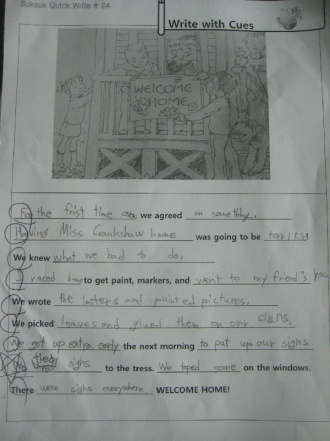 Suksuk Quick Write # 24
Write with Cues
WELCOME
HOME
For the frist time ever, we agreed on something.
Having Miss Crankshaw home was going to be terrific!
We knew what we had to do,
I raced home to get paint, markers, and went to my friend's house
We wrote the letters and painted pictures.
We picked leaves and glued them on our signs.
We got up extra early the next morning to put up our signs
We tied signs to the tress. We taped some on the windows.
There were signs everywhere WELCOME HOME!